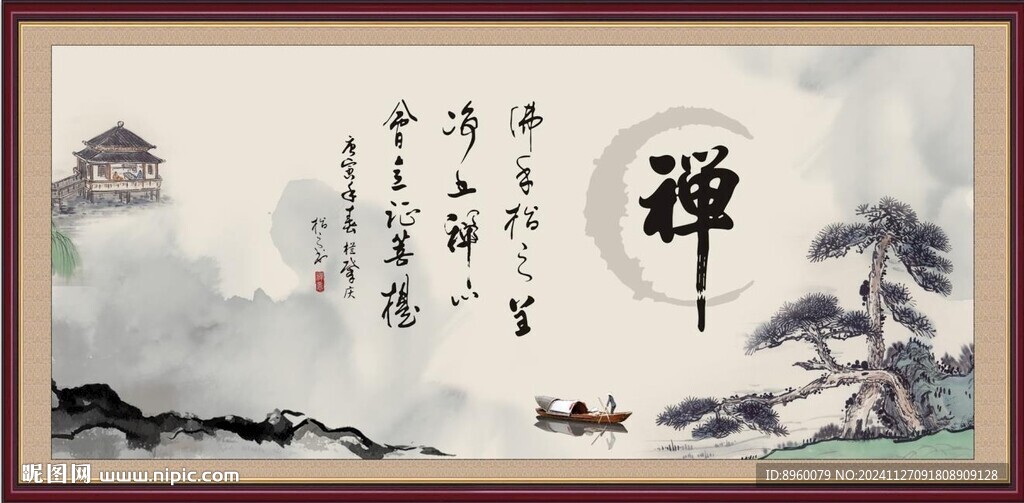 禅
佛手招之至
海上禅心
會立证菩提
庚寅年春 於肇庆
昵图网 www.nipic.com
ID:8960079 NO:20241127091808909128